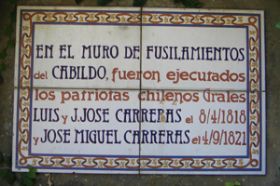 EN EL MURO DE FUSILAMIENTOS
del CABILDO, fueron ejecutados
los patriotas chilenos Grales
LUIS y J.JOSE CARRERAS el 8/4/1818
y JOSE MIGUEL CARRERAS el 4/9/1821